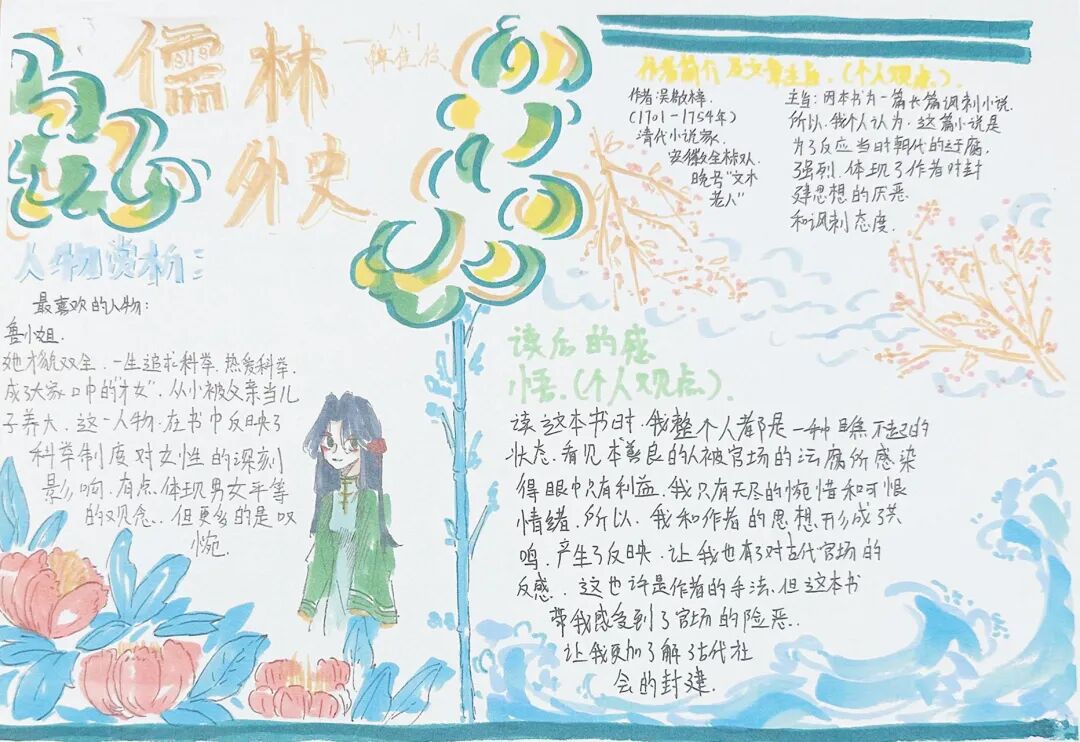 儒林
外史
人物赏析:
最喜欢的人物:
鲁小姐.
她才貌双全.一生追求科举.热爱科举.
成了大家口中的"才女".从小被父亲当儿
子养大.这一人物.在书中反映了
科举制度对女性的深刻
影响.有点.体现男女平等
的观念.但更多的是叹
惋.
作者简介及文章主旨.(个人观点).
作者:吴敬梓.
(1701-1754年)
清代小说家.
安徽全椒人.
晚号"文木
老人"
主旨:因本书为一篇长篇讽刺小说.
所以.我个人认为.这篇小说是
为了反应当时朝代的迂腐.
强烈.体现了作者对封
建思想的厌恶.
和讽刺态度.
读后的感
悟.(个人观点).
读这本书时.我整个人都是一种瞧不起的
状态.看见本善良的人被官场的污腐所感染
得眼中只有利益.我只有无尽的惋惜和可恨
情绪.所以.我和作者的思想形成了共
鸣.产生了反映.让我也有了对古代官场的
反感.这也许是作者的手法.但这本书
带我感受到了官场的险恶..
让我更加了解了古代社
会的封建.